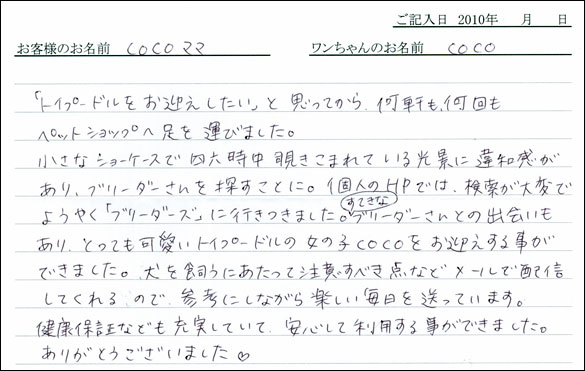 ご記入日 2010年 月 日
お客様のお名前 COCOママ ワンちゃんのお名前 COCO
「トイプードルをお迎えしたい」と思ってから、何軒も、何回も
ペットショップへ足を運びました。
小さなショーケースで四六時中覗きこまれている光景に違和感が
あり、ブリーダーさんを探すことに。個人のHPでは、検索が大変で
すてきな
ようやく「ブリーダーズ」に行きつきました。ブリーダーさんとの出会いも
あり、とっても可愛いトイプードルの女の子COCOをお迎えする事が
できました。犬を飼うにあたって注意すべき点などメールで配信
してくれるので、参考にしながら楽しい毎日を送っています。
健康保証なども充実していて、安心して利用する事ができました。
ありがとうございました♡